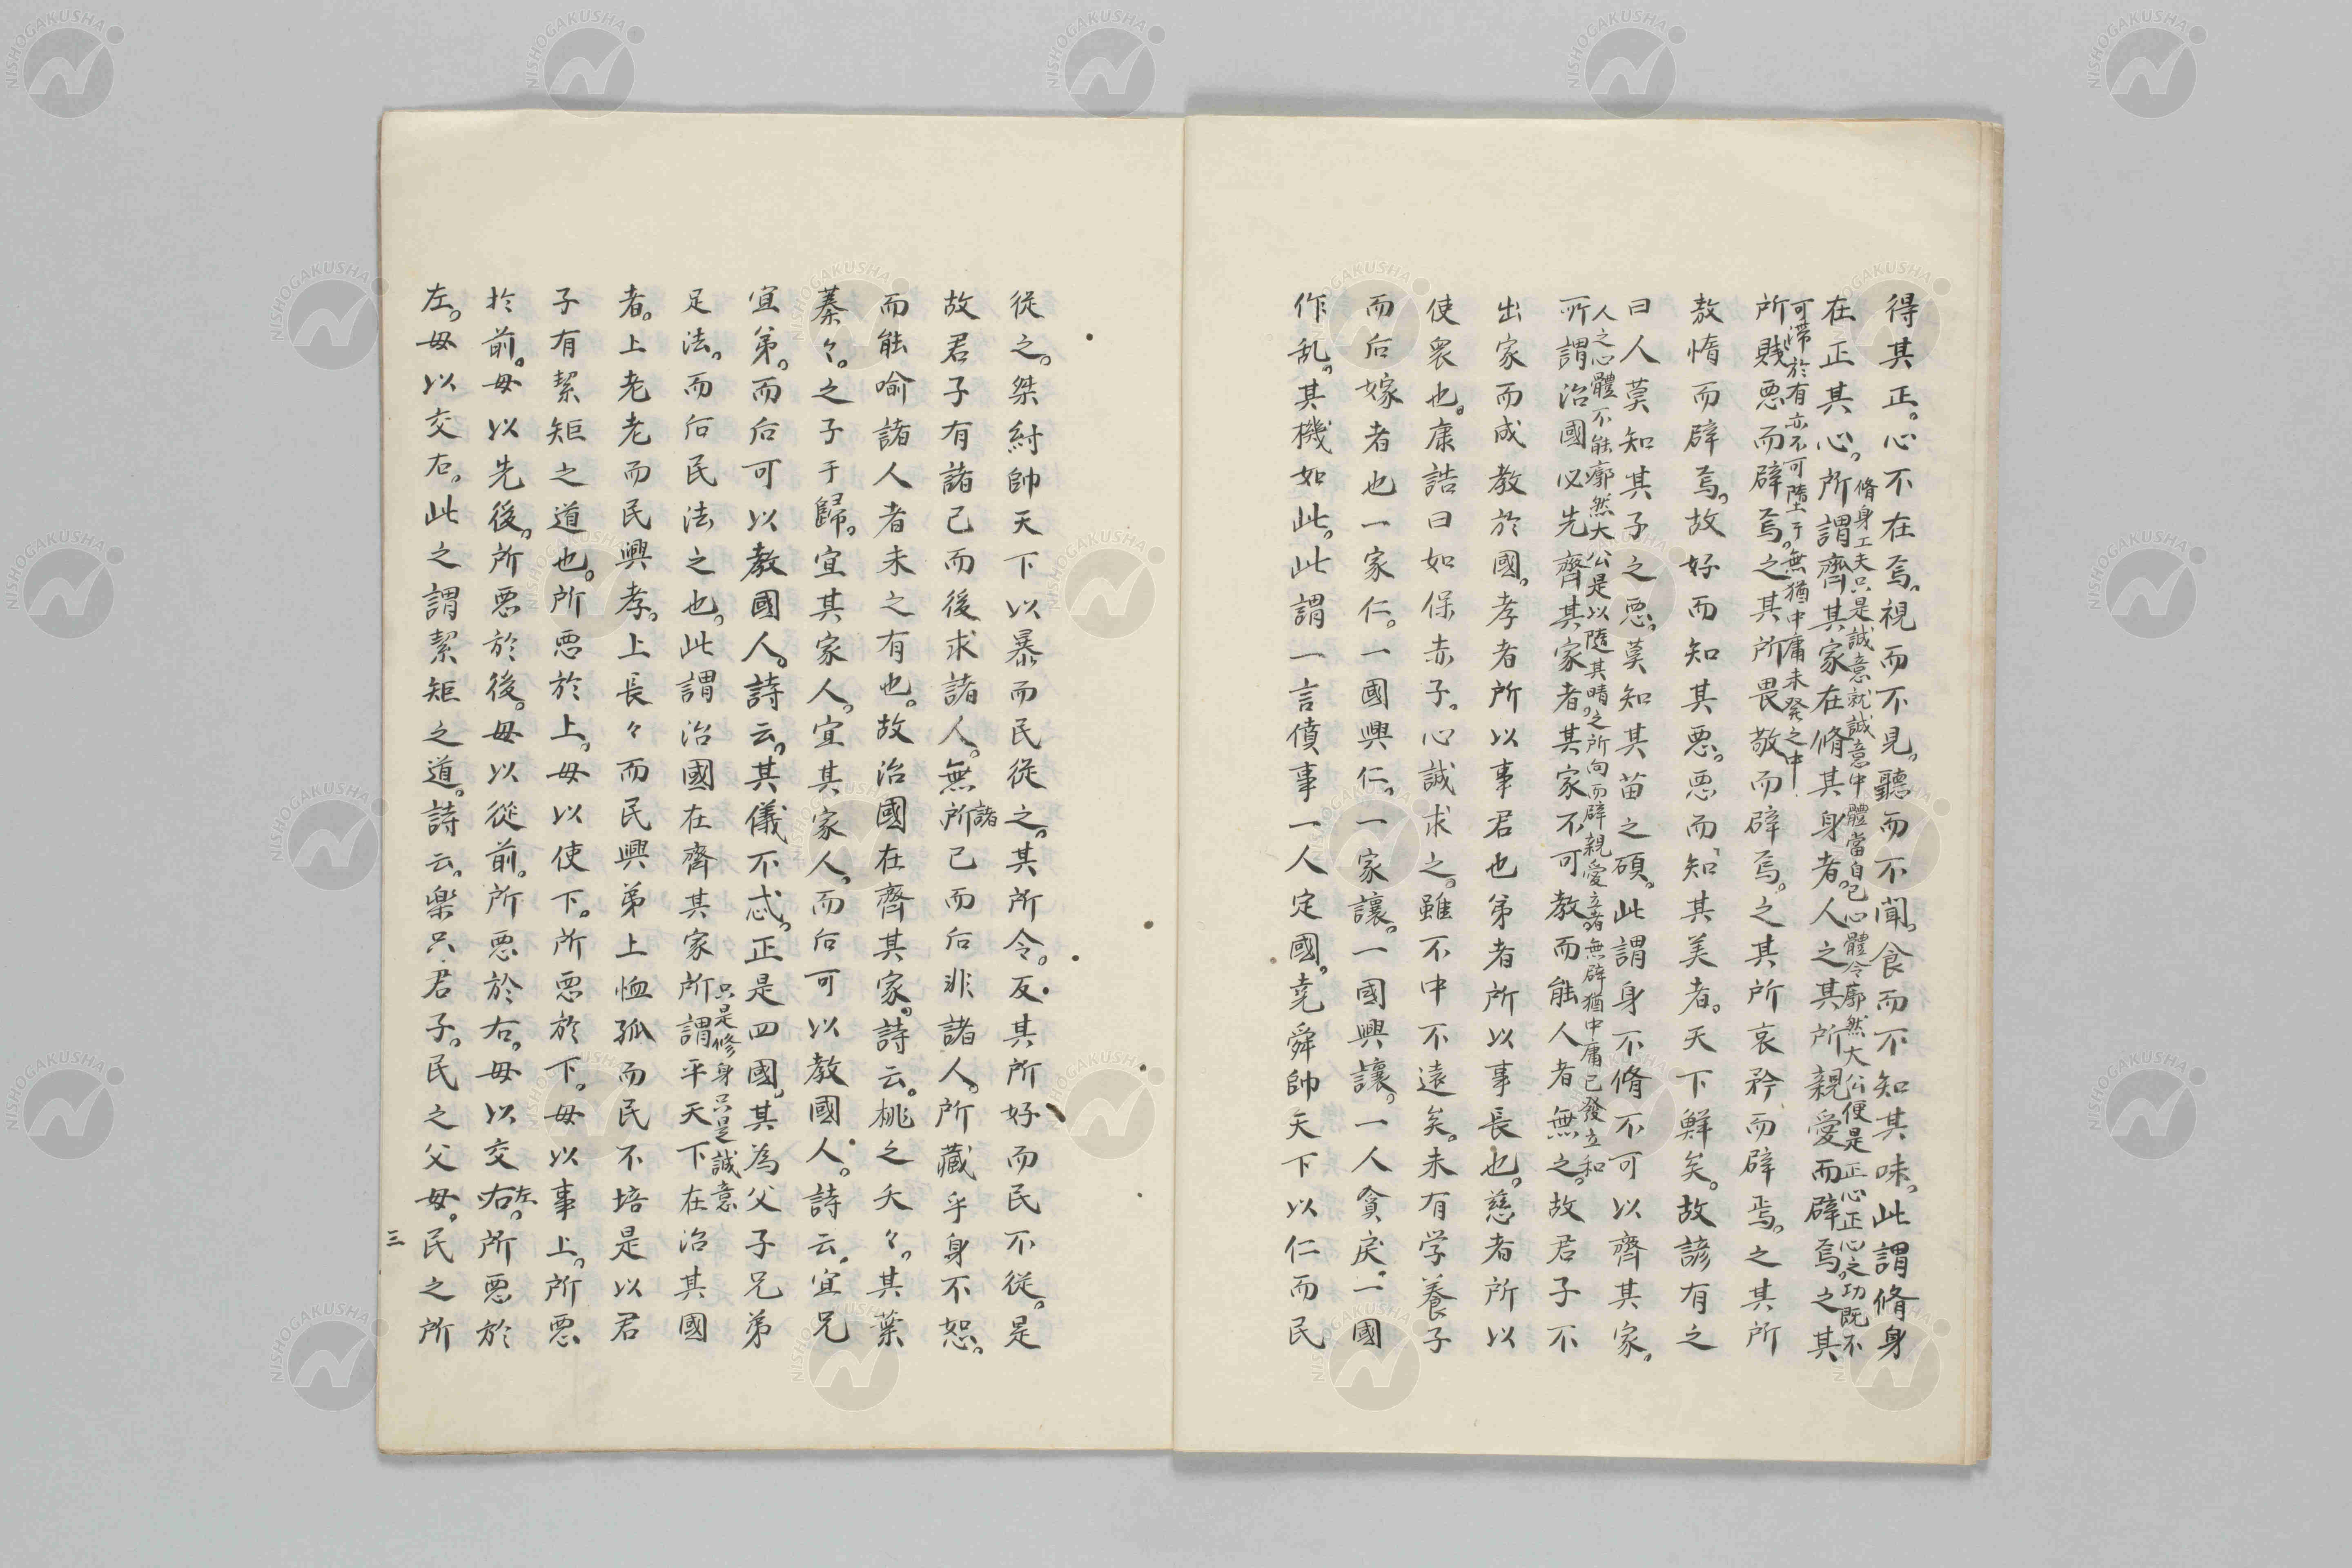 得其正。心不在焉。視而不見。聽而不聞。食而不知其味。此謂脩身
脩身工夫只是誠意就誠意中體當自己心體令廓然大公便是正心正心之功既不
在正其心。所謂齊其家在脩其身者。人之其所親愛而辟焉。之其
可滯於有亦不可墮于無猶中庸未発之中
所賤悪而辟焉。之其所畏敬而辟焉。之其所哀矜而辟焉。之其所
敖惰而辟焉。故好而知其悪。悪而知其美者。天下鮮矣。故諺有之
曰人莫知其子之悪。莫知其苗之碩。此謂身不脩不可以齊其家。
人之心體不能廓然大公是以隨其晴之所向而辟親愛立者無辟猶中庸已發立和
所謂治國必先齊其家者。其家不可教而能人者無之。故君子不
出家而成教於國。孝者所以事君也弟者所以事長也。慈者所以
使衆也。康誥曰如保赤子。心誠求之。雖不中不遠矣。未有学養子
而后嫁者也一家仁。一國興仁。一家讓。一國興讓。一人貪戾。一國
作乱。其機如此。此謂一言僨事一人定國。尭舜帥天下以仁而民
從之。桀紂帥天下以暴而民従之。其所令。反其所好而民不従。是
故君子有諸己而後求諸人。無所己而后非諸人。所藏乎身不恕。
諸
而能喻諸人者未之有也。故治國在齊其家。詩云。桃之夭々。其葉
蓁々。之子于歸。宜其家人。宜其家人。而后可以教國人。詩云。宜兄
宜弟。而后可以教國人。詩云。其儀不忒。正是四國。其為父子兄弟
只是修身只是誠意
足法。而后民法之也。此謂治國在齊其家所謂平天下在治其國
者。上老老而民興孝。上長々而民興弟上恤孤而民不培是以君
子有絜矩之道也。所悪於上。毋以使下。所悪於下。毋以事上。所悪
於前。毋以先後。所悪於後。毋以從前。所悪於右。毋以交右。所悪於
左
左。毋以交右。此之謂絜矩之道。詩云。楽只君子。民之父母。民之所
三
NISHOGAKUSHA